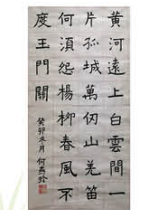 黃河遠上白雲間一
片孤城萬仞山羌笛
何須怨楊柳春風不
度玉門關
癸卯 月 何